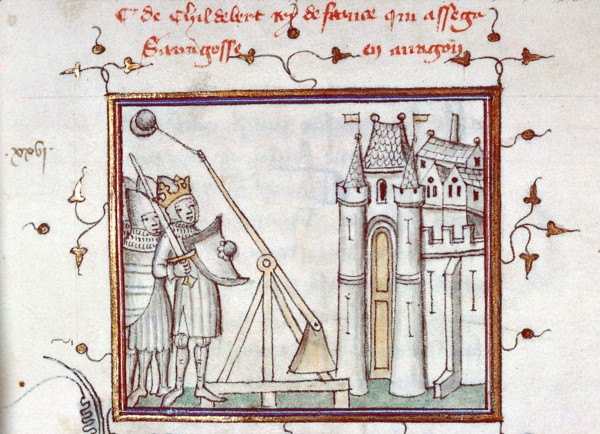 de Childebert roy de france qui assega
Sarragosse en arragon